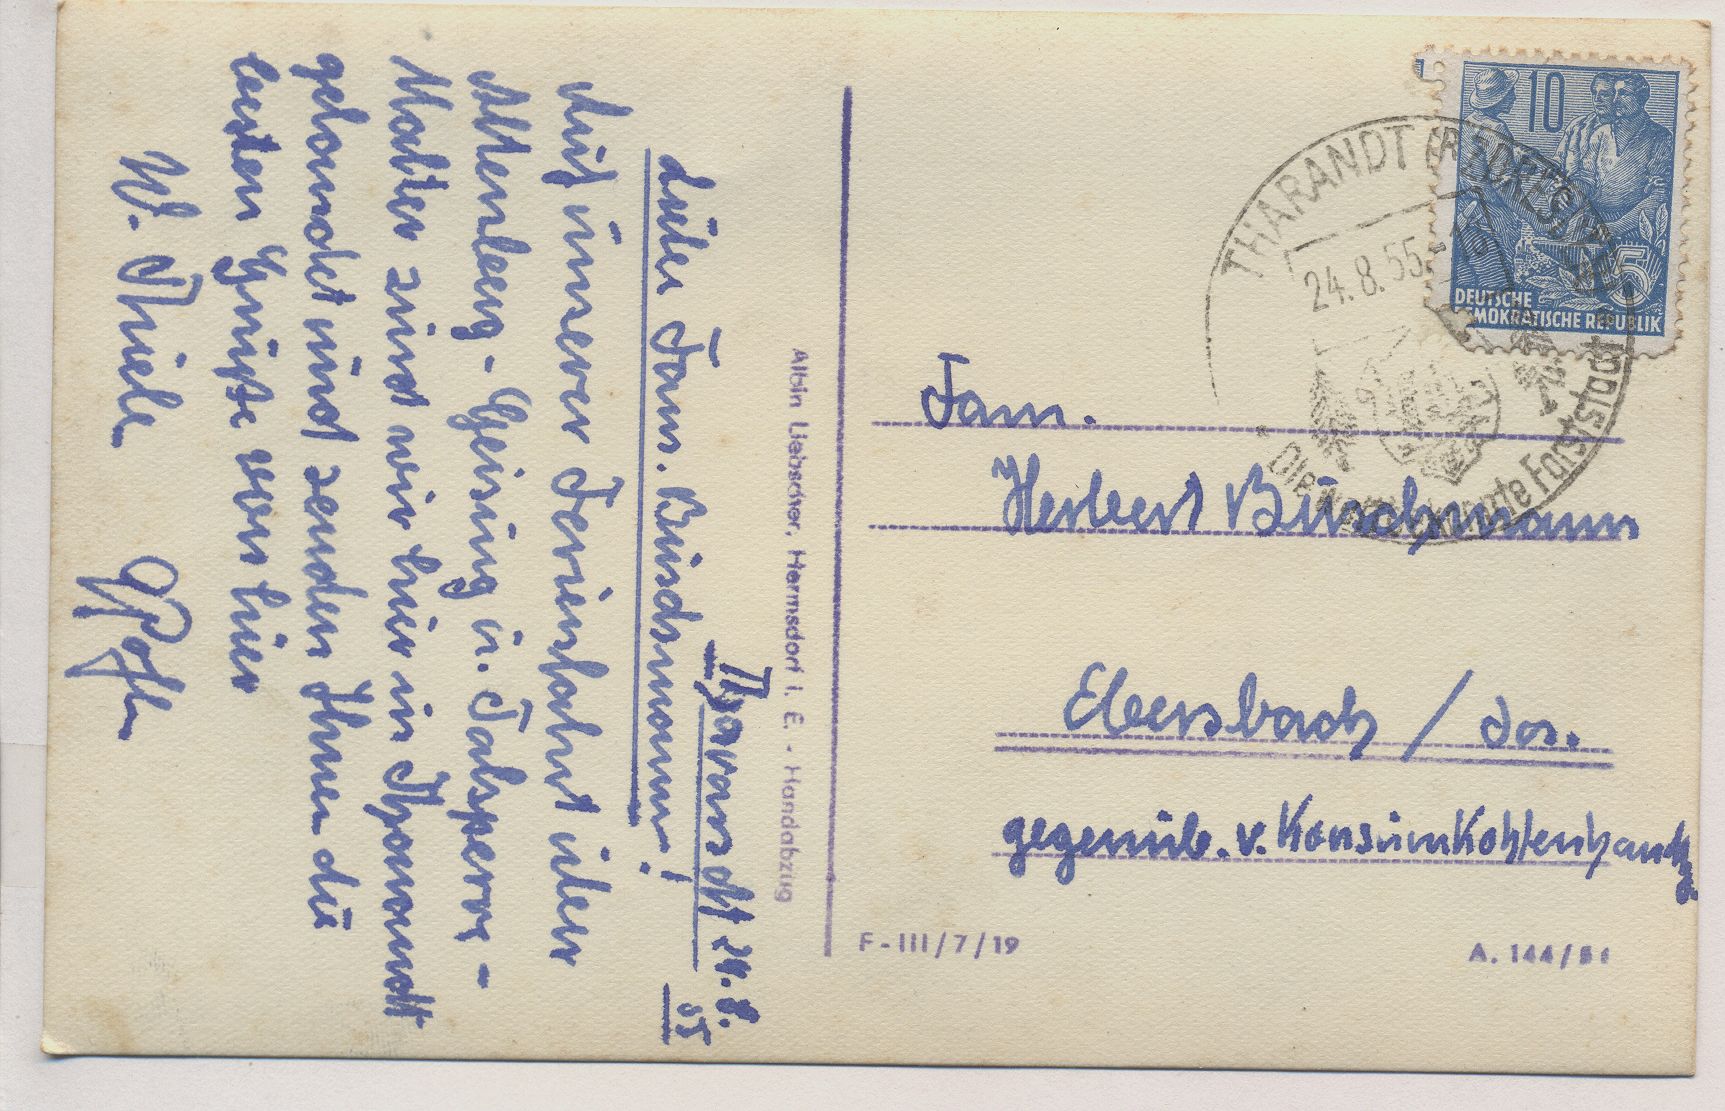 Tharandt 24.8.
55
Liebe Fam. Buschmann!
Auf unserer Ferienfahrt über
Altenberg - Geising u. Talsperre -
Malter sind wir hier in Tharandt
gelandet und senden Ihnen die
besten Grüße von hier
W. Thiele
Albin Liebscher, Hermsdorf i. E. - Handabzug
10
5
DEUTSCHE
DEMOKRATISCHE REPUBLIK
THARANDT
24.8.55
Die weltbekannte Forststadt
Fam.
Herbert Buschmann
Ebersbach / Sa.
gegenüb. v. Konsum Kohlenhandl
F-III/7/19
A. 144/51